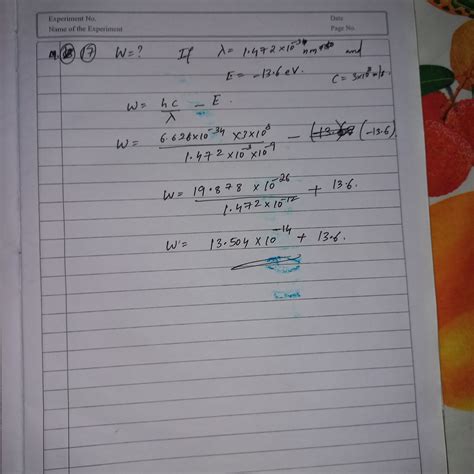 Experiment No. Date
Name of the Experiment Page No.
17 W=? If λ = 1.472×10⁻³ nm and
E = -13.6 eV. C = 3×10⁸ m/s.
W = hc/λ - E.
W = 6.626×10⁻³⁴ ×3×10⁸ / 1.472 ×10⁻³ ×10⁻⁹ - (-13.6)
W = 19.878 ×10⁻²⁶ / 1.472×10⁻¹² + 13.6.
W = 13.504×10⁻¹⁴ + 13.6.